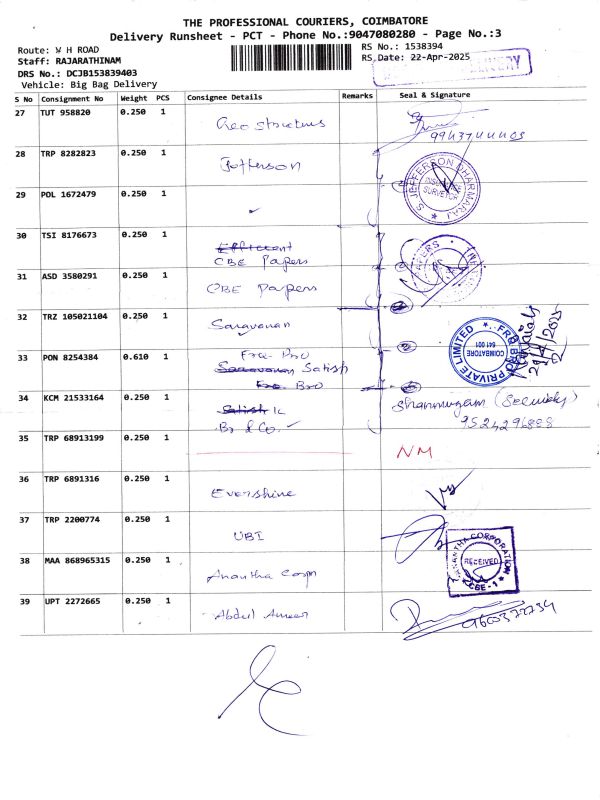 THE PROFESSIONAL COURIERS, COIMBATORE
Delivery Runsheet - PCT - Phone No.:9047080280 - Page No.:3
Route: W H ROAD
RS No.: 1538394
Staff: RAJARATHINAM
RS Date: 22-Apr-2025
DRS No.: DCJB153839403
Vehicle: Big Bag Delivery
S No Consignment No Weight PCS Consignee Details Remarks Seal & Signature
27 TUT 958820 0.250 1 Geo structures
28 TRP 8282823 0.250 1 Jefferson
S. JEFFERSON DHARMARAJ SURVEYOR
29 POL 1672479 0.250 1
30 TSI 8176673 0.250 1 Efficient
CBE Papers
31 ASD 3580291 0.250 1 CBE Papers
32 TRZ 105021104 0.250 1 Saravanan
33 PON 8254384 0.610 1 Fre Bro
Saravanan Satish
Fre Bro
FRB BRO PRIVATE LIMITED
COIMBATORE
641 001
34 KCM 21533164 0.250 1 Satish K
Br & Co.
Shanmugam (Security)
9524296888
35 TRP 68913199 0.250 1 NM
36 TRP 6891316 0.250 1 Evershine
37 TRP 2200774 0.250 1 UBI
38 MAA 868965315 0.250 1 Anantha Corpn
ANANTHA CORPORATION
RECEIVED
CBE-1
39 UPT 2272665 0.250 1 Abdul Ameer